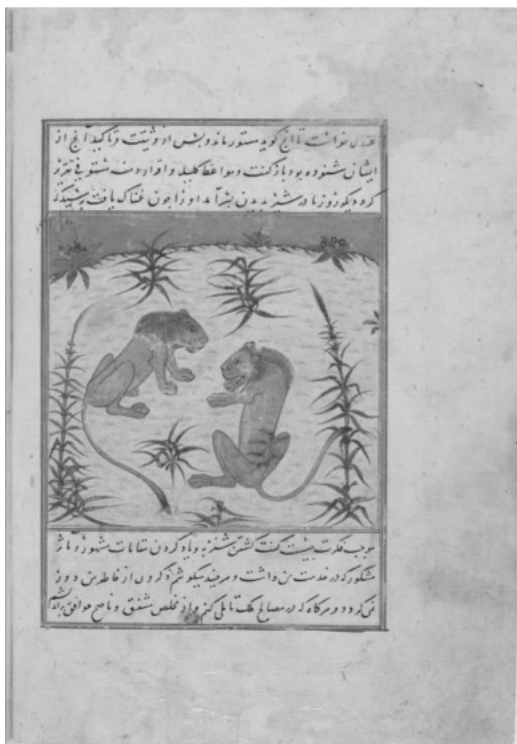 عهدی خواست تا آنچ گوید مستور ماند و پس از وثیقت و تاکید آنچ از
ایشان شنوده بود باز گفت و مواعظ کلیله و اقرار دمنه مستوفی تقریر
کرد دیگر روز مادر شیر بدیدن پسر آمد او را چون غمناک یافت پرسید که
موجب فکرت چیست گفت کشتن شنزبه و یاد کردن مقامات مشهور و مآثر
مشکور که در خدمت من داشت و هرچند میکوشم ذکر وی از خاطر من دور
نمی کردد و هرکاه که در مصالح ملک تاملی کنم و از مخلص مشفق و ناصح موافق براندیشم